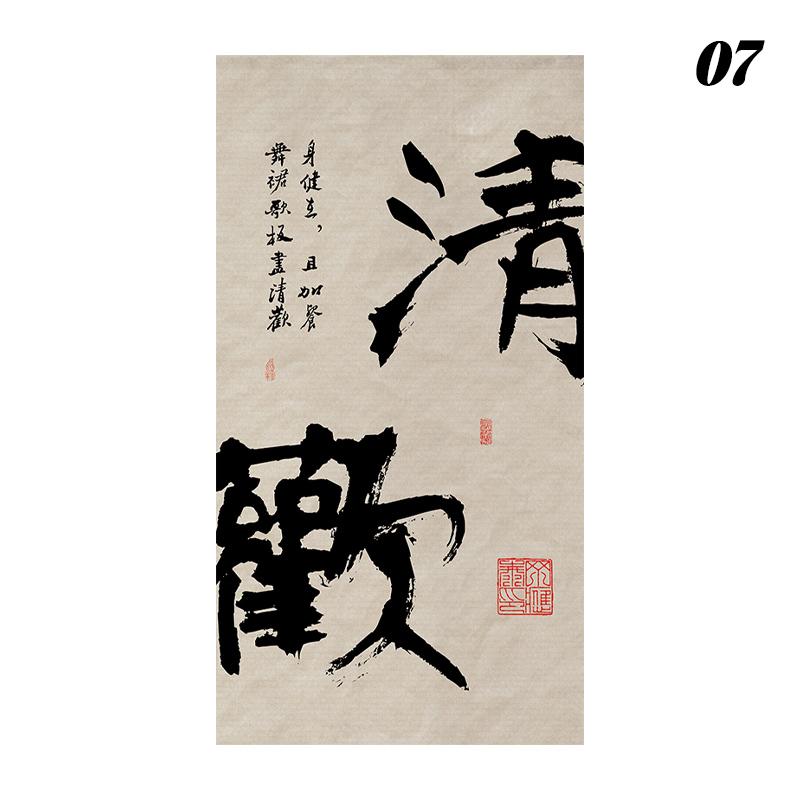 07
清
歡
身健在，且加餐
舞裙歌板盡清歡